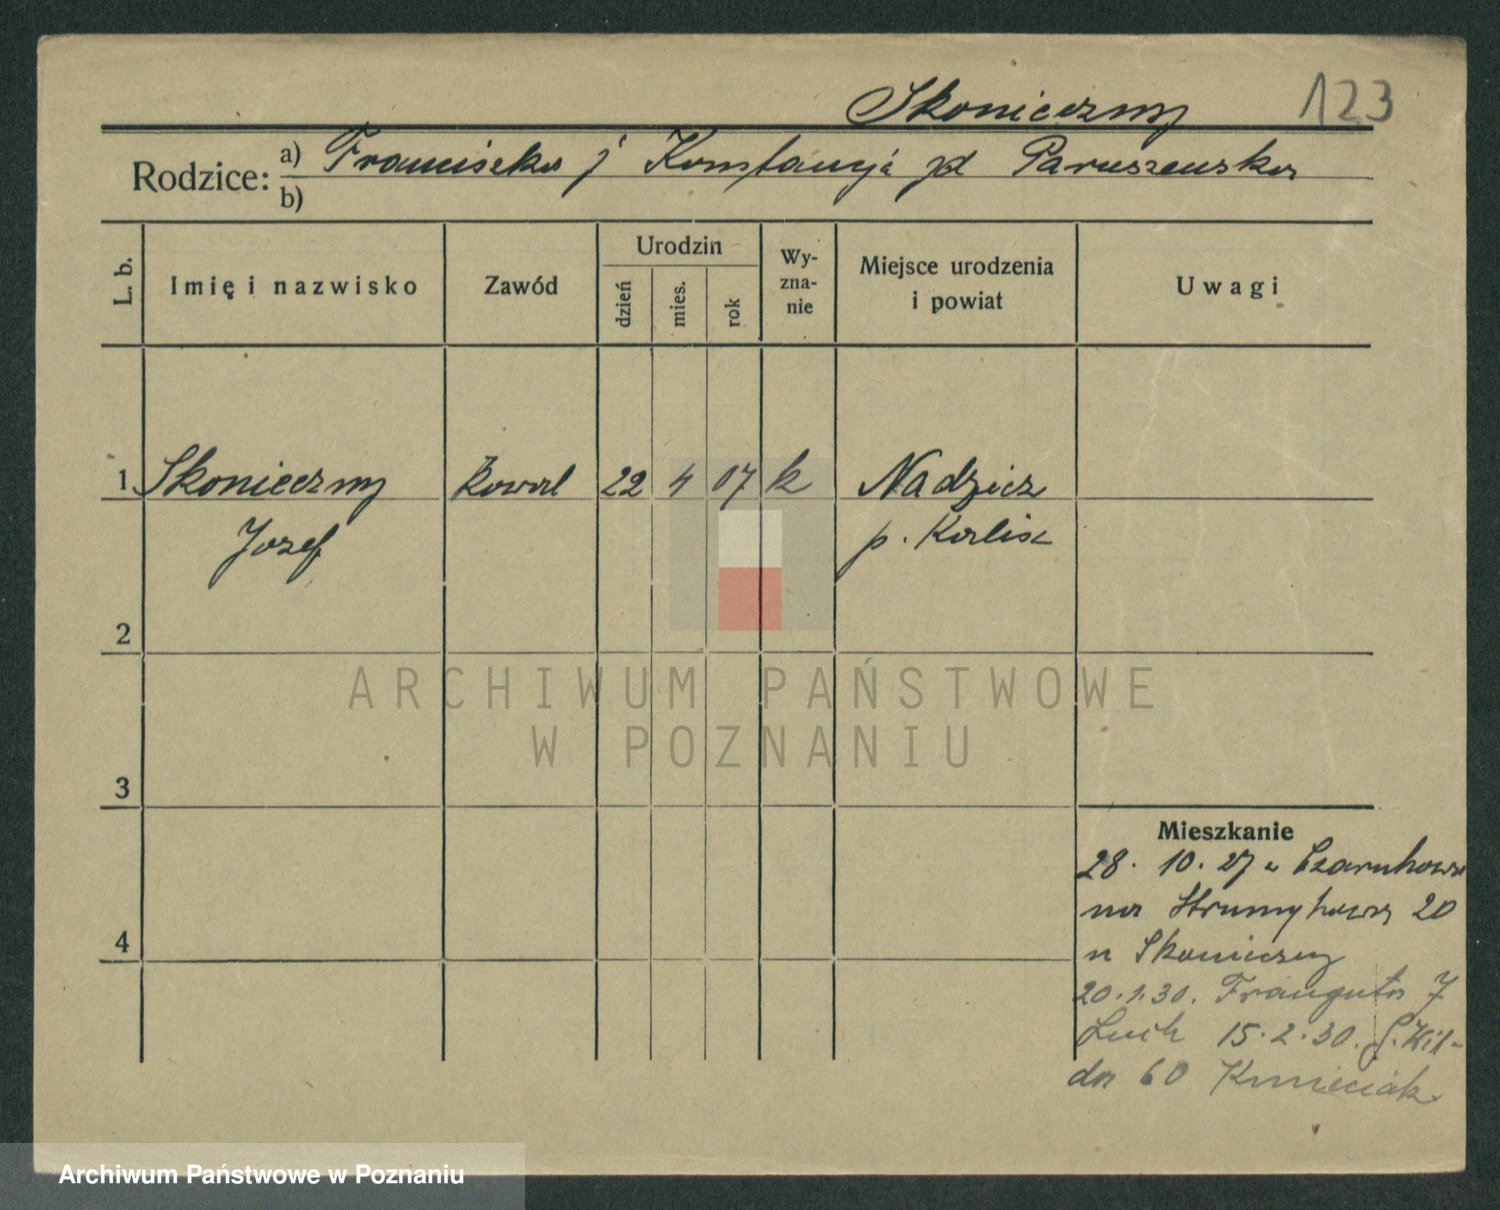 Skonieczny 123
Rodzice: a) Franciszka i Konstancja zd Paruszewska
b)
L. b. Imię i nazwisko Zawód Urodzin dzień mies. rok Wyznanie Miejsce urodzenia i powiat Uwagi
1 Skonieczny kowal 22 4 07 k Nadzież
Józef p. Kalisz
2
3
4
Mieszkanie
28. 10. 27 z
na 20
u Skonieczny
20.1.30. Trauguta 7
15.2.30. Ś. Kił-
da 60 Kmieciak
ARCHIWUM PAŃSTWOWE
W POZNANIU
Archiwum Państwowe w Poznaniu